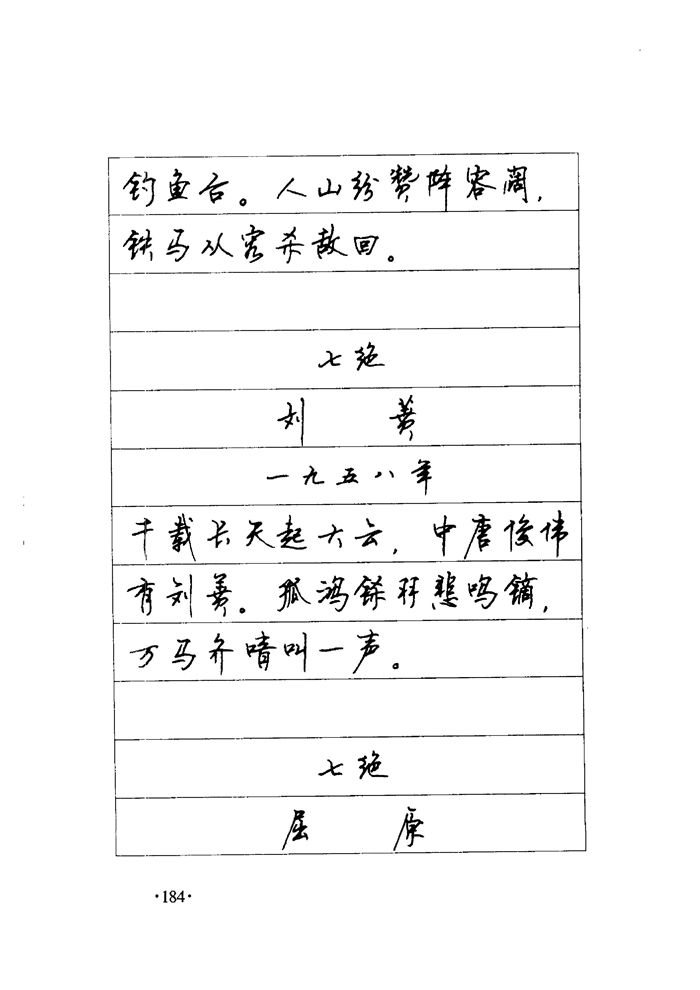 钓鱼台。人山纷赞阵容阔，
铁马从容杀敌回。
七绝
刘 蕡
一九五八年
千载长天起大云，中唐俊伟
有刘蕡。孤鸿铩羽悲鸣镝，
万马齐喑叫一声。
七绝
屈 原
·184·